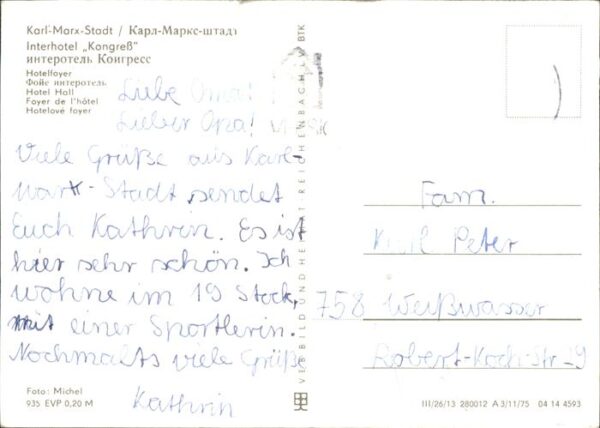 Karl-Marx-Stadt / Карл-Маркс-штадт
Interhotel „Kongreß"
интеротель Конгресс
Hotelfoyer
Фойе интеротель
Hotel Hall
Foyer de l'hôtel
Hotelové foyer
Liebe Oma!
Lieber Opa!
Viele Grüße aus Karl-
Marx-Stadt sendet
Euch Kathrin. Es ist
hier sehr schön. Ich
wohne im 19 Stock,
mit einer Sportlerin.
Nochmalts viele Grüße
Kathrin
Foto: Michel
935 EVP 0,20 M
VEB BILD UND HEIMAT REICHENBACH I. V. BTK
Fam.
Karl Peter
758 Weißwasser
Robert-Koch-Str-9
III/26/13 280012 A 3/11/75 04 14 4593